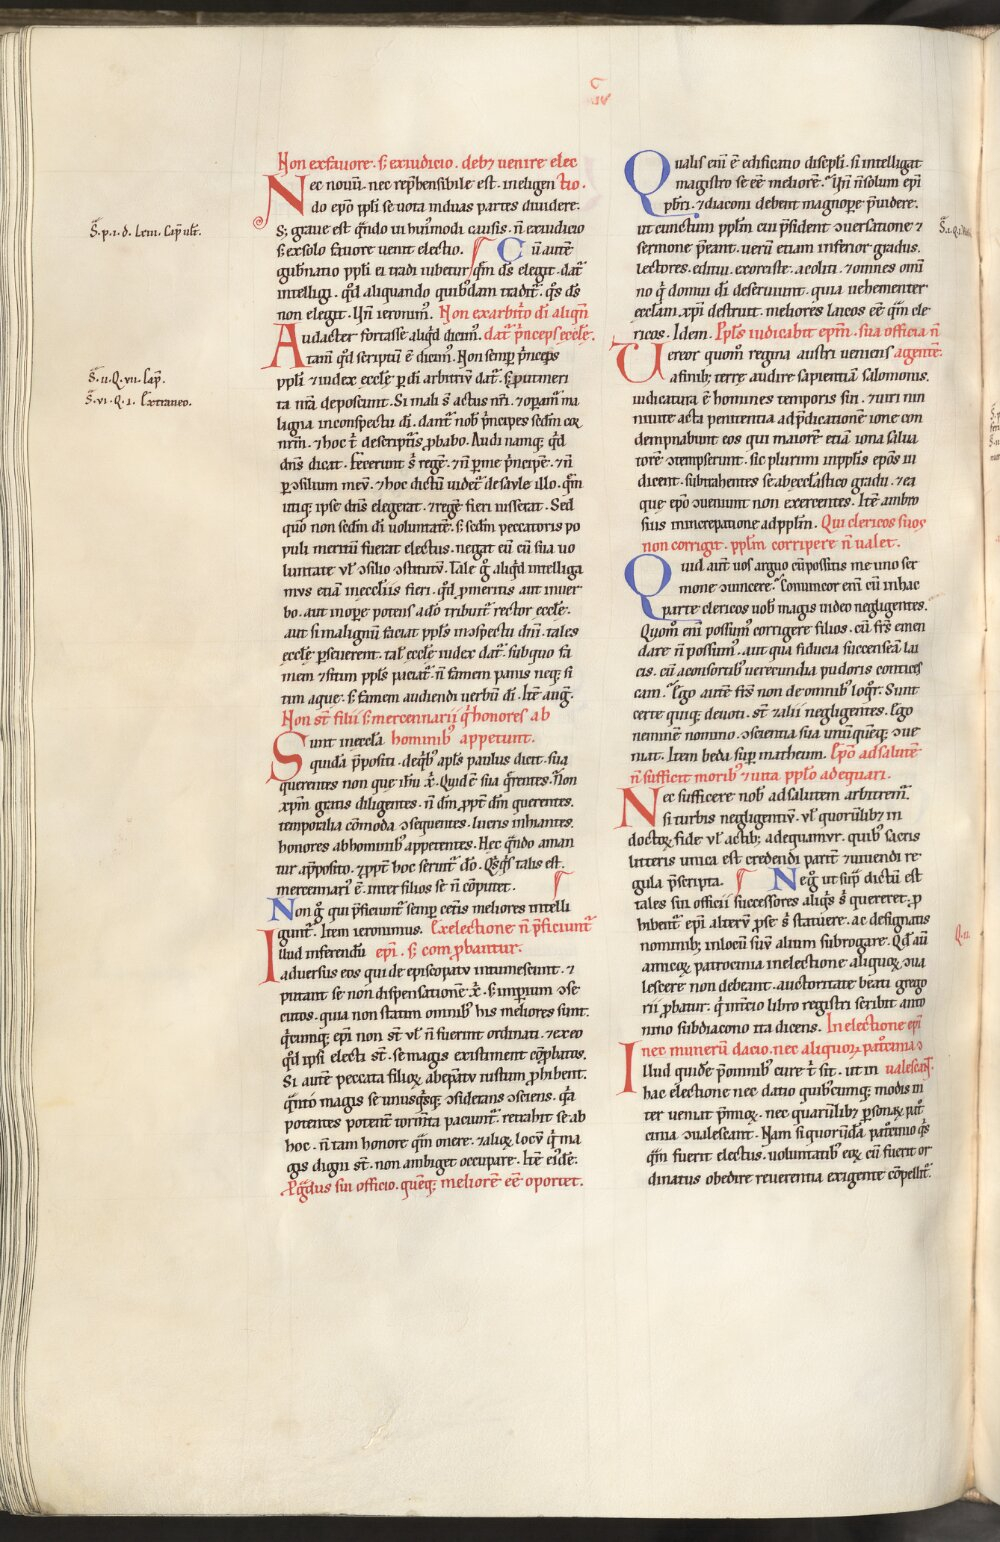 C
IV
Non ex fauore · s; ex iudicio · deb3 uenire elec
Nec nouũ · nec rep̃hensibile est · in eligen tio ·
do ep̃o pp̃li se uota in duas partes diuidere ·
s; graue est q̃ndo ui hui'modi causis · ñ ex iudicio
s; ex solo fauore uenit electio . Cũ autẽ
gub̃natio pp̃li ei tradi iubetur q̃m d̃s elegit · dat̃
intelligi · q̃d aliquando quib'dam tradit̃ · q̃s d̃s
non elegit · Uñ ieronim' . Non ex arbit̃o d̃i aliq̃n
Audacter fortasse aliq̃d dicim' . dat̃ p̃nceps eccl̃e ·
tam̃ q̃d scriptũ ẽ dicim' . Non semp̃ p̃nceps
pp̃li ⁊ iudex eccl̃e p̱ d̃i arbitriũ dat̃ · s; p̱ut meri
ta nr̃a deposcunt . Si mali s̃ actus nr̃i · ⁊ oper̃am' ma
ligna in conspectu d̃i · dant̃ nob' p̃ncipes scđm cor
nr̃m · ⁊ hoc t̃ de scripturis p̱babo . Audi namq; q̃d
dñs dicat · Fecerunt s' regẽ · ⁊ ñ p̱ me p̃ncipẽ · ⁊ ñ
p̱ ɔsilium meũ · ⁊ hoc dictũ uidet̃ de saule illo · q̃m
utiq; ipse dñs elegerat · ⁊ regẽ fieri iusserat . Sed
q̃o non scđm d̃i uoluntatẽ · s; scđm peccatoris po
puli meritũ fuerat electus · negat eũ cũ sua uo
luntate ul' ɔsilio ɔstitutũ . Tale g̊ aliq̃d intelliga
mus etiã in eccl̃iis fieri · q̃d p̱ meritis aut in uer
bo · aut in op̱e potens a d̃o tribuit̃ rector eccl̃e ·
aut si malignũ faciat pp̃l's in ɔspectu dñi · tales
eccl̃e p̱seuerent · tal' eccl̃e iudex dat̃ · sub quo fa
mem ⁊ sitim pp̃l's paciat̃ · ñ famem panis neq; si
tim aque · s; famem audiendi uerbũ d̃i . Itẽ aug̃ ·
Non st̃ filii s; mercennarii q̃ honores ab
Sunt in eccl̃ia hominib' appetunt .
quidã p̃positi · de q̃b' apl's paulus dicit · sua
querentes non que ih̃u x̃ . Quid ẽ sua q̃rentes · Non
xp̃m gratis diligentes · ñ d̃m p̱pt̃ d̃m querentes ·
temporalia cõmoda ɔsequentes · lucris inhiantes ·
honores ab hominib' appetentes . Hec q̃ndo aman
tur a p̃posito · ⁊ p̱pt̃ hoc seruit̃ d̃o · Q̃sq̃s talis est ·
mercenari' ẽ · inter filios se ñ cõputet .
Non g̊ qui p̃ficiunt̃ semp̃ cet̃is meliores intelli
gunt̃ . Item ieronimus . Ex electione ñ p̃ficiunt̃
Illud inferendũ ep̃i · s; com p̱bantur .
aduersus eos qui de episcopatu intumescunt · ⁊
putant se non dispensationẽ x̃ · s; imperium ɔse
cutos · quia non statim omnib' his meliores sunt ·
q̃cumq; ep̃i non st̃ ul' ñ fuerint ordinati · ⁊ ex eo
q̃d ipsi electi st̃ · se magis existiment cõp̱batos ·
Si autẽ peccata filior ab ep̃atu iustum p̱hibent ·
q̃nto magis se unusq̃sq; ɔsiderans ɔsciens · q̃a
potentes potent̃ torm̃ta paciunt̃ · retrahit se ab
hoc · ñ tam honore q̃m onere · ⁊ alior locũ q̃ ma
gis digni st̃ · non ambiget occupare . Itẽ eid̃e ·
P̱ gradus sui officio · quẽq; meliorẽ eẽ oportet .
Qualis eni' ẽ edificatio discipl'i · si intelligat
magistro se eẽ meliorẽ · Uñ ñ solum ep̃i
pb̃ri · ⁊ diaconi debent magnop̱e p̃uidere ·
ut cunctum pp̃lm cui p̃sident ɔuersatione ⁊
sermone p̃eant · uerũ etiam inferior gradus ·
lectores · editui · exorciste · acoliti · ⁊ omnes om̃i
no q̃ domui d̃i deseruiunt · quia uehementer
eccl̃am xp̃i destruit · meliores laicos eẽ q̃m cle
ricos . Idem . Pp̃l's iudicabit ep̃m · sua officia ñ
Uereor quom̃ regina austri ueniens agentẽ ·
a finib; terrę audire sapientiã salomonis ·
iudicatura ẽ homines temporis sui · ⁊ uiri nin
niuite acta penitentia ad p̃dicationẽ ione con
dempnabunt eos qui maiorẽ etiã iona salua
torẽ ɔtempserunt · sic plurimi in pp̃l'is ep̃os iu
dicent · subtrahentes se ab eccl̃astico gradu · ⁊ ea
que ep̃o ɔueniunt non exercentes . Itẽ ambro
sius in increpatione ad pp̃lm . Qui clericos suos
non corrigit · pp̃lm corripere ñ ualet .
Quid aut̃ uos arguo cũ possitis me uno ser
mone ɔuincere · Comuncor eni' cũ in hac
parte clericos uob' magis uideo negligentes .
Quom̃ eni' possum' corrigere filios · cũ fr̃s emen
dare ñ possum' · aut qua fiducia succenseã lai
cis · cũ a consortib' uerecundia pudoris contices
cam · Ego autẽ fr̃s non de omnib' loq̃r · Sunt
certe quiq; deuoti · st̃ ⁊ alii negligentes . Ego
neminẽ nomino · ɔscientia sua unũquẽq; ɔue
niat . Item beda sup̱ matheum . Ep̃o ad salutẽ
ñ sufficit morib' ⁊ uita pp̃lo adequari .
Nec sufficere nob' ad salutem arbitrem̃
si turbis negligentiũ · ul' quorũlib3 in
doctor fide ul' actib; adequamur · quib' sacris
litteris unica est credendi parit̃ ⁊ uiuendi re
gula p̃scripta . Neq; ut sup̱ dictũ est
tales sui officii successores aliq̃s s' quereret · p̱
hibent̃ ep̃i alterũ p̱ se s' statuere · ac designatis
nominib; in locũ suũ alium subrogare . Q̃d aũ
amicor patrocinia in electione aliquor ɔua
lescere non debeant · auctoritate beati grego
rii p̱batur · q̃ in initio libro registri scribit anto
nino subdiacono ita dicens . In electione ep̃i
nec munerũ dacio · nec aliquor patrocinia ɔ
Illud quidẽ p̃ omnib' cure t̃ sit · ut in ualescant̃ .
hac electione nec datio quibuscumq; modis in
ter ueniat p̃mior · nec quarũlib3 p̱sonar pat̃
cinia ɔualescant · Nam si quorũdã patrocinio q̃s
q̃m fuerit electus · uoluntatib' eor cũ fuerit or
dinatus obedire reuerentia exigente cõpellit̃ .
S̃ · p · i · d · lxiii · Cap̃ ult̃ .
S̃ · ii · Q · vii · Cap̃ .
S̃ · vi · Q · i · Extraneo .
Q · ii ·